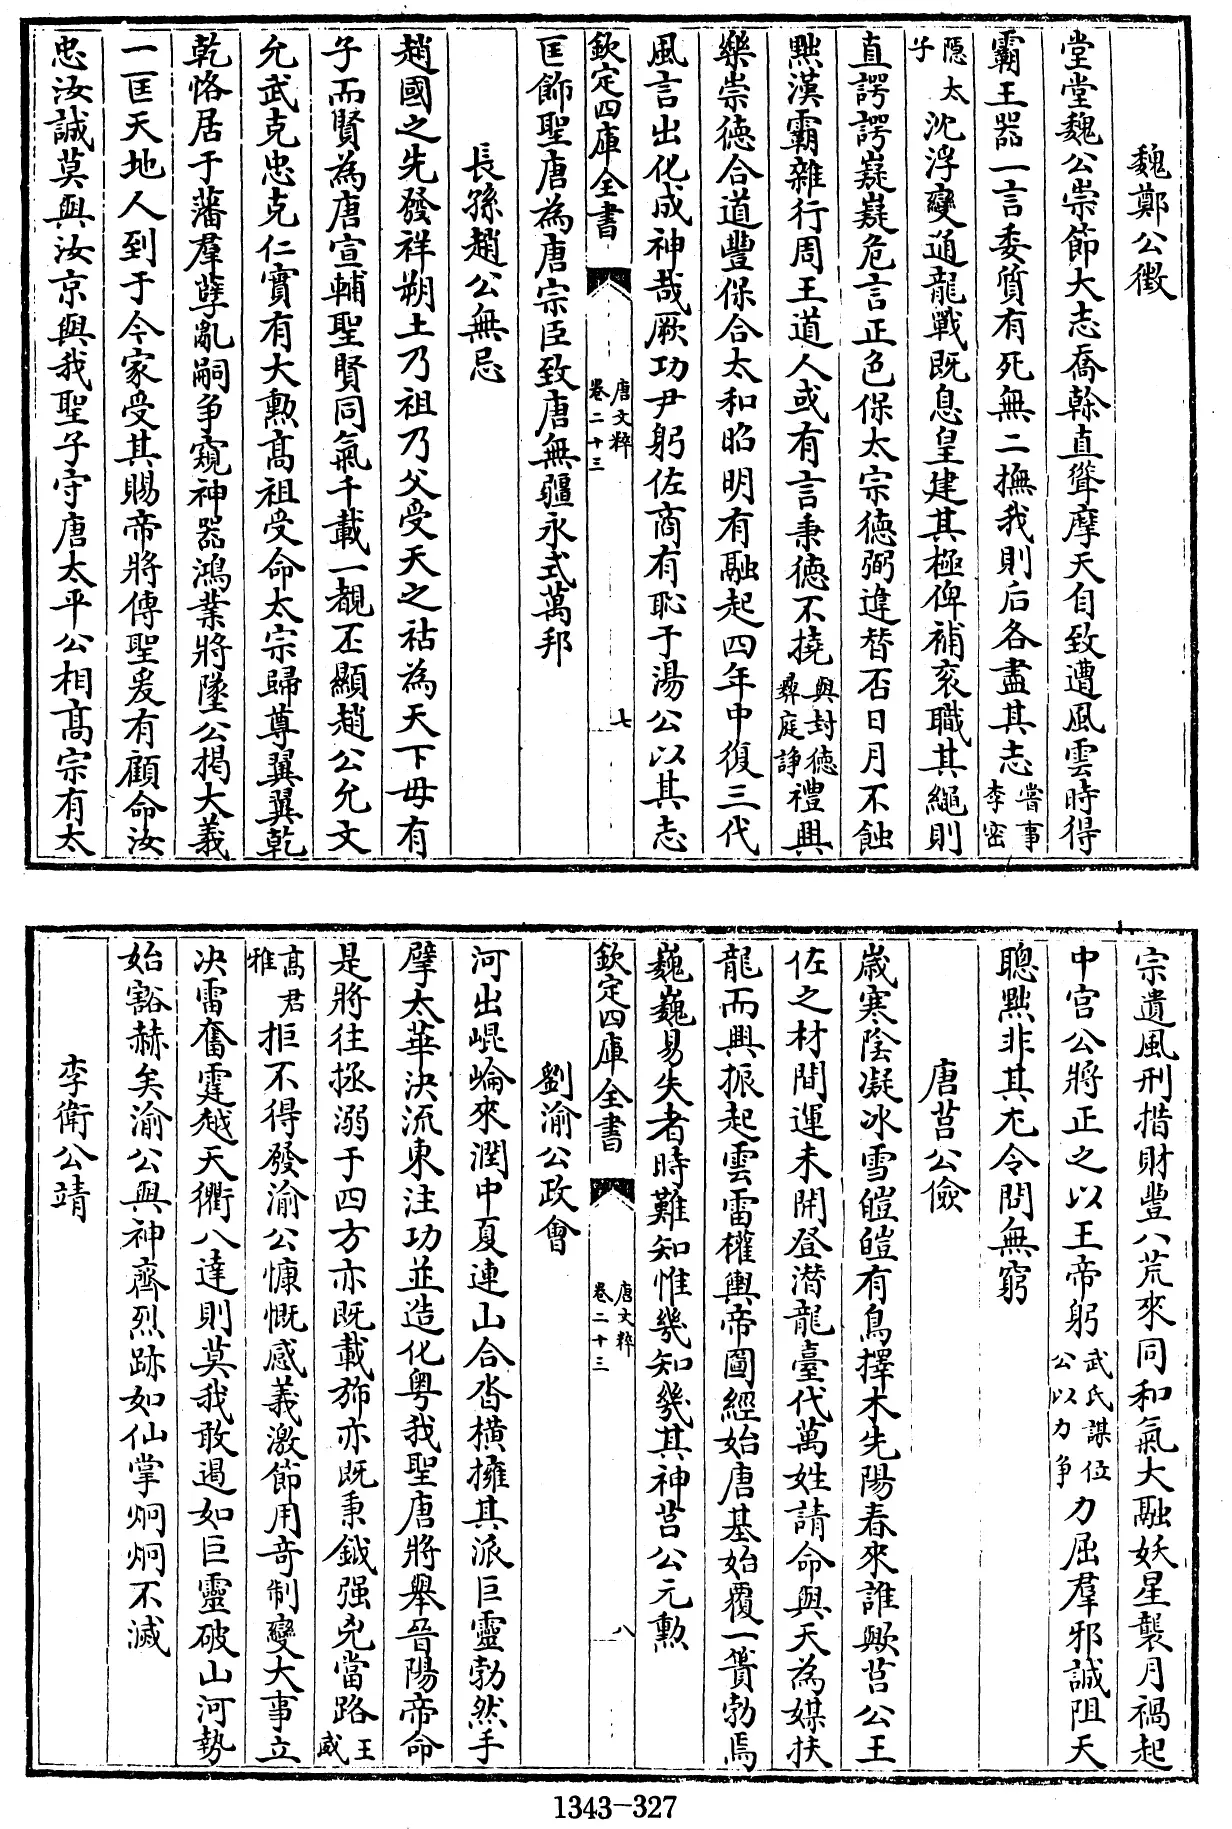 魏鄭公徵
堂堂魏公崇節大志喬幹直聳摩天自致遭風雲時得
霸王器一言委質有死無二撫我則后各盡其志嘗事李密
隱太子沈浮變通龍戰既息皇建其極俾補衮職其繩則
直諤諤嶷嶷危言正色保太宗德弼違替否日月不蝕
㸃漢霸雜行周王道人或有言秉德不撓與封德彞庭諍禮興
樂崇德合道豐保合太和昭明有融起四年中復三代
風言出化成神哉厥功尹躬佐商有恥于湯公以其志
欽定四庫全書
唐文粹
卷二十三
七
匡飾聖唐為唐宗臣致唐無疆永式萬邦
長孫趙公無忌
趙國之先發祥朔土乃祖乃父受天之祜為天下母有
子而賢為唐宣輔聖賢同氣千載一覩丕顯趙公允文
允武克忠克仁實有大勲髙祖受命太宗歸尊翼翼乾
乾恪居于藩羣孽亂嗣争窺神器鴻業將墜公掲大義
一匡天地人到于今家受其賜帝將傳聖爰有顧命汝
忠汝誠莫與汝京與我聖子守唐太平公相髙宗有太
宗遺風刑措財豐八荒來同和氣大融妖星襲月禍起
中宫公將正之以王帝躬武氏謀位公以力争力屈羣邪誠阻天
聰㸃非其尤令問無窮
唐莒公儉
嵗寒陰凝冰雪皚皚有鳥擇木先陽春來誰歟莒公王
佐之材間運未開登潛龍臺代萬姓請命與天為媒扶
龍而興振起雲雷權輿帝圖經始唐基始覆一簣勃焉
巍巍易失者時難知惟幾知幾其神莒公元勲
欽定四庫全書
唐文粹
卷二十三
八
劉渝公政會
河出崐崘來潤中夏連山合沓横擁其派巨靈勃然手
擘太華決流東注功並造化粤我聖唐將舉晉陽帝命
是將往拯溺于四方亦既載斾亦既秉鉞强兇當路王威
髙君雅拒不得發渝公慷慨感義激節用竒制變大事立
决雷奮霆越天衢八達則莫我敢遏如巨靈破山河勢
始豁赫矣渝公興神齊烈跡如仙掌炯炯不滅
李衛公靖
1343-327